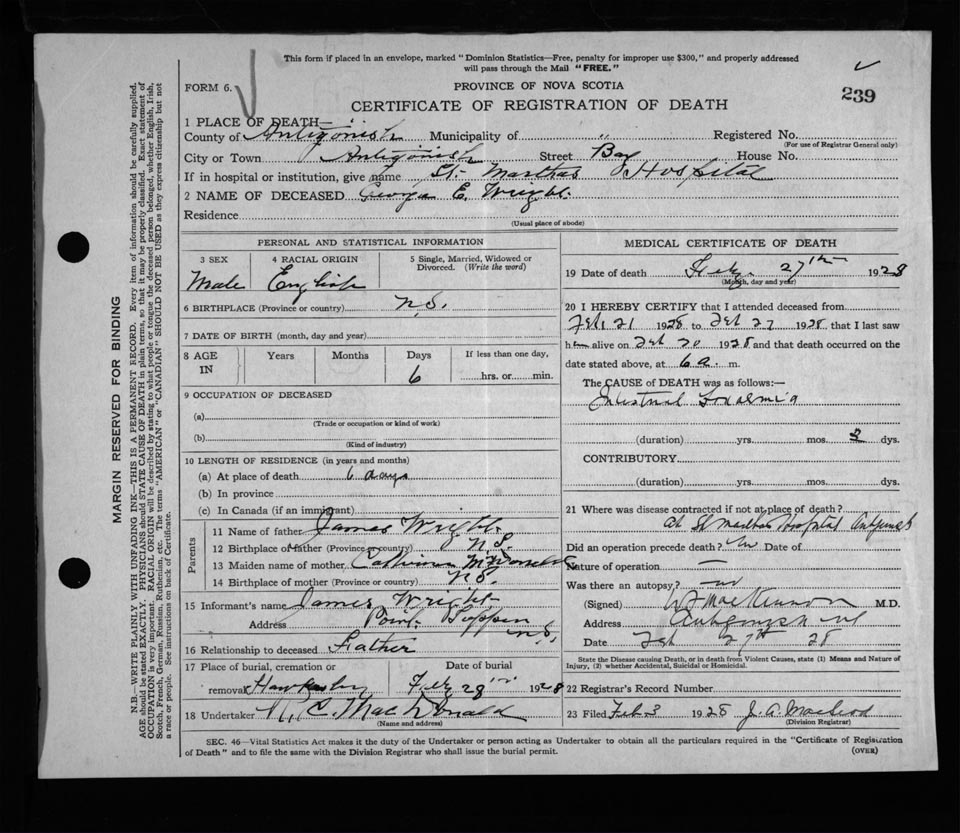 This form if placed in an envelope, marked "Dominion Statistics—Free, penalty for improper use $300," and properly addressed
will pass through the Mail "FREE."
FORM 6.
PROVINCE OF NOVA SCOTIA
239
CERTIFICATE OF REGISTRATION OF DEATH
1 PLACE OF DEATH—
County of Antigonish Municipality of " Registered No.
(For use of Registrar General only)
City or Town Antigonish Street Bay House No.
If in hospital or institution, give name St. Marthas Hospital
2 NAME OF DECEASED George E. Wright.
Residence
(Usual place of abode)
PERSONAL AND STATISTICAL INFORMATION
3 SEX 4 RACIAL ORIGIN 5 Single, Married, Widowed or
Divorced. (Write the word)
Male English
6 BIRTHPLACE (Province or country) N.S.
7 DATE OF BIRTH (month, day and year)
8 AGE Years Months Days If less than one day,
IN 6 hrs. or min.
9 OCCUPATION OF DECEASED
(a)
(Trade or occupation or kind of work)
(b)
(Kind of industry)
10 LENGTH OF RESIDENCE (in years and months)
(a) At place of death 6 days
(b) In province
(c) In Canada (if an immigrant)
Parents
11 Name of father James Wright
12 Birthplace of father (Province or country) N.S.
13 Maiden name of mother McDonald
14 Birthplace of mother (Province or country) N.S.
15 Informant's name James Wright
Address Point Tupper N.S.
16 Relationship to deceased Father
17 Place of burial, cremation or Date of burial
removal Hawkesbury Feby 28th 1928
18 Undertaker R. C. MacDonald
(Name and address)
MEDICAL CERTIFICATE OF DEATH
19 Date of death Feby. 27th 1928
(Month, day and year)
20 I HEREBY CERTIFY that I attended deceased from
Feb 21 1928 to Feb 27 1928 that I last saw
h alive on Feb 1928 and that death occurred on the
date stated above, at 6 a. m.
The CAUSE OF DEATH was as follows:—
Intestinal Toxaemia
(duration) yrs. mos. 3 dys.
CONTRIBUTORY
(duration) yrs. mos. dys.
21 Where was disease contracted if not at place of death?
At St Marthas Hospital Antigonish
Did an operation precede death? No Date of
Nature of operation —
Was there an autopsy? no
(Signed) MacKinnon M.D.
Address Antigonish NS
Date Feb 27th 28
State the Disease causing Death, or in death from Violent Causes, state (1) Means and Nature of
Injury, (2) whether Accidental, Suicidal or Homicidal.
22 Registrar's Record Number
23 Filed Feb 3 1928 J. A. Macleod
(Division Registrar)
SEC. 46—Vital Statistics Act makes it the duty of the Undertaker or person acting as Undertaker to obtain all the particulars required in the "Certificate of Registration
of Death" and to file the same with the Division Registrar who shall issue the burial permit. (OVER)
MARGIN RESERVED FOR BINDING
N.B.—WRITE PLAINLY WITH UNFADING INK—THIS IS A PERMANENT RECORD. Every item of information should be carefully supplied.
AGE should be stated EXACTLY. PHYSICIANS should STATE CAUSE OF DEATH in plain terms, so that it may be properly classified. Exact statement of
OCCUPATION is very important. RACIAL ORIGIN will be described by stating to what people or tongue the deceased person belonged, whether English, Irish,
Scotch, French, German, Russian, Ruthenian, etc. The terms "AMERICAN" or "CANADIAN" SHOULD NOT BE USED as they express citizenship but not
a race or people. See instructions on back of Certificate.